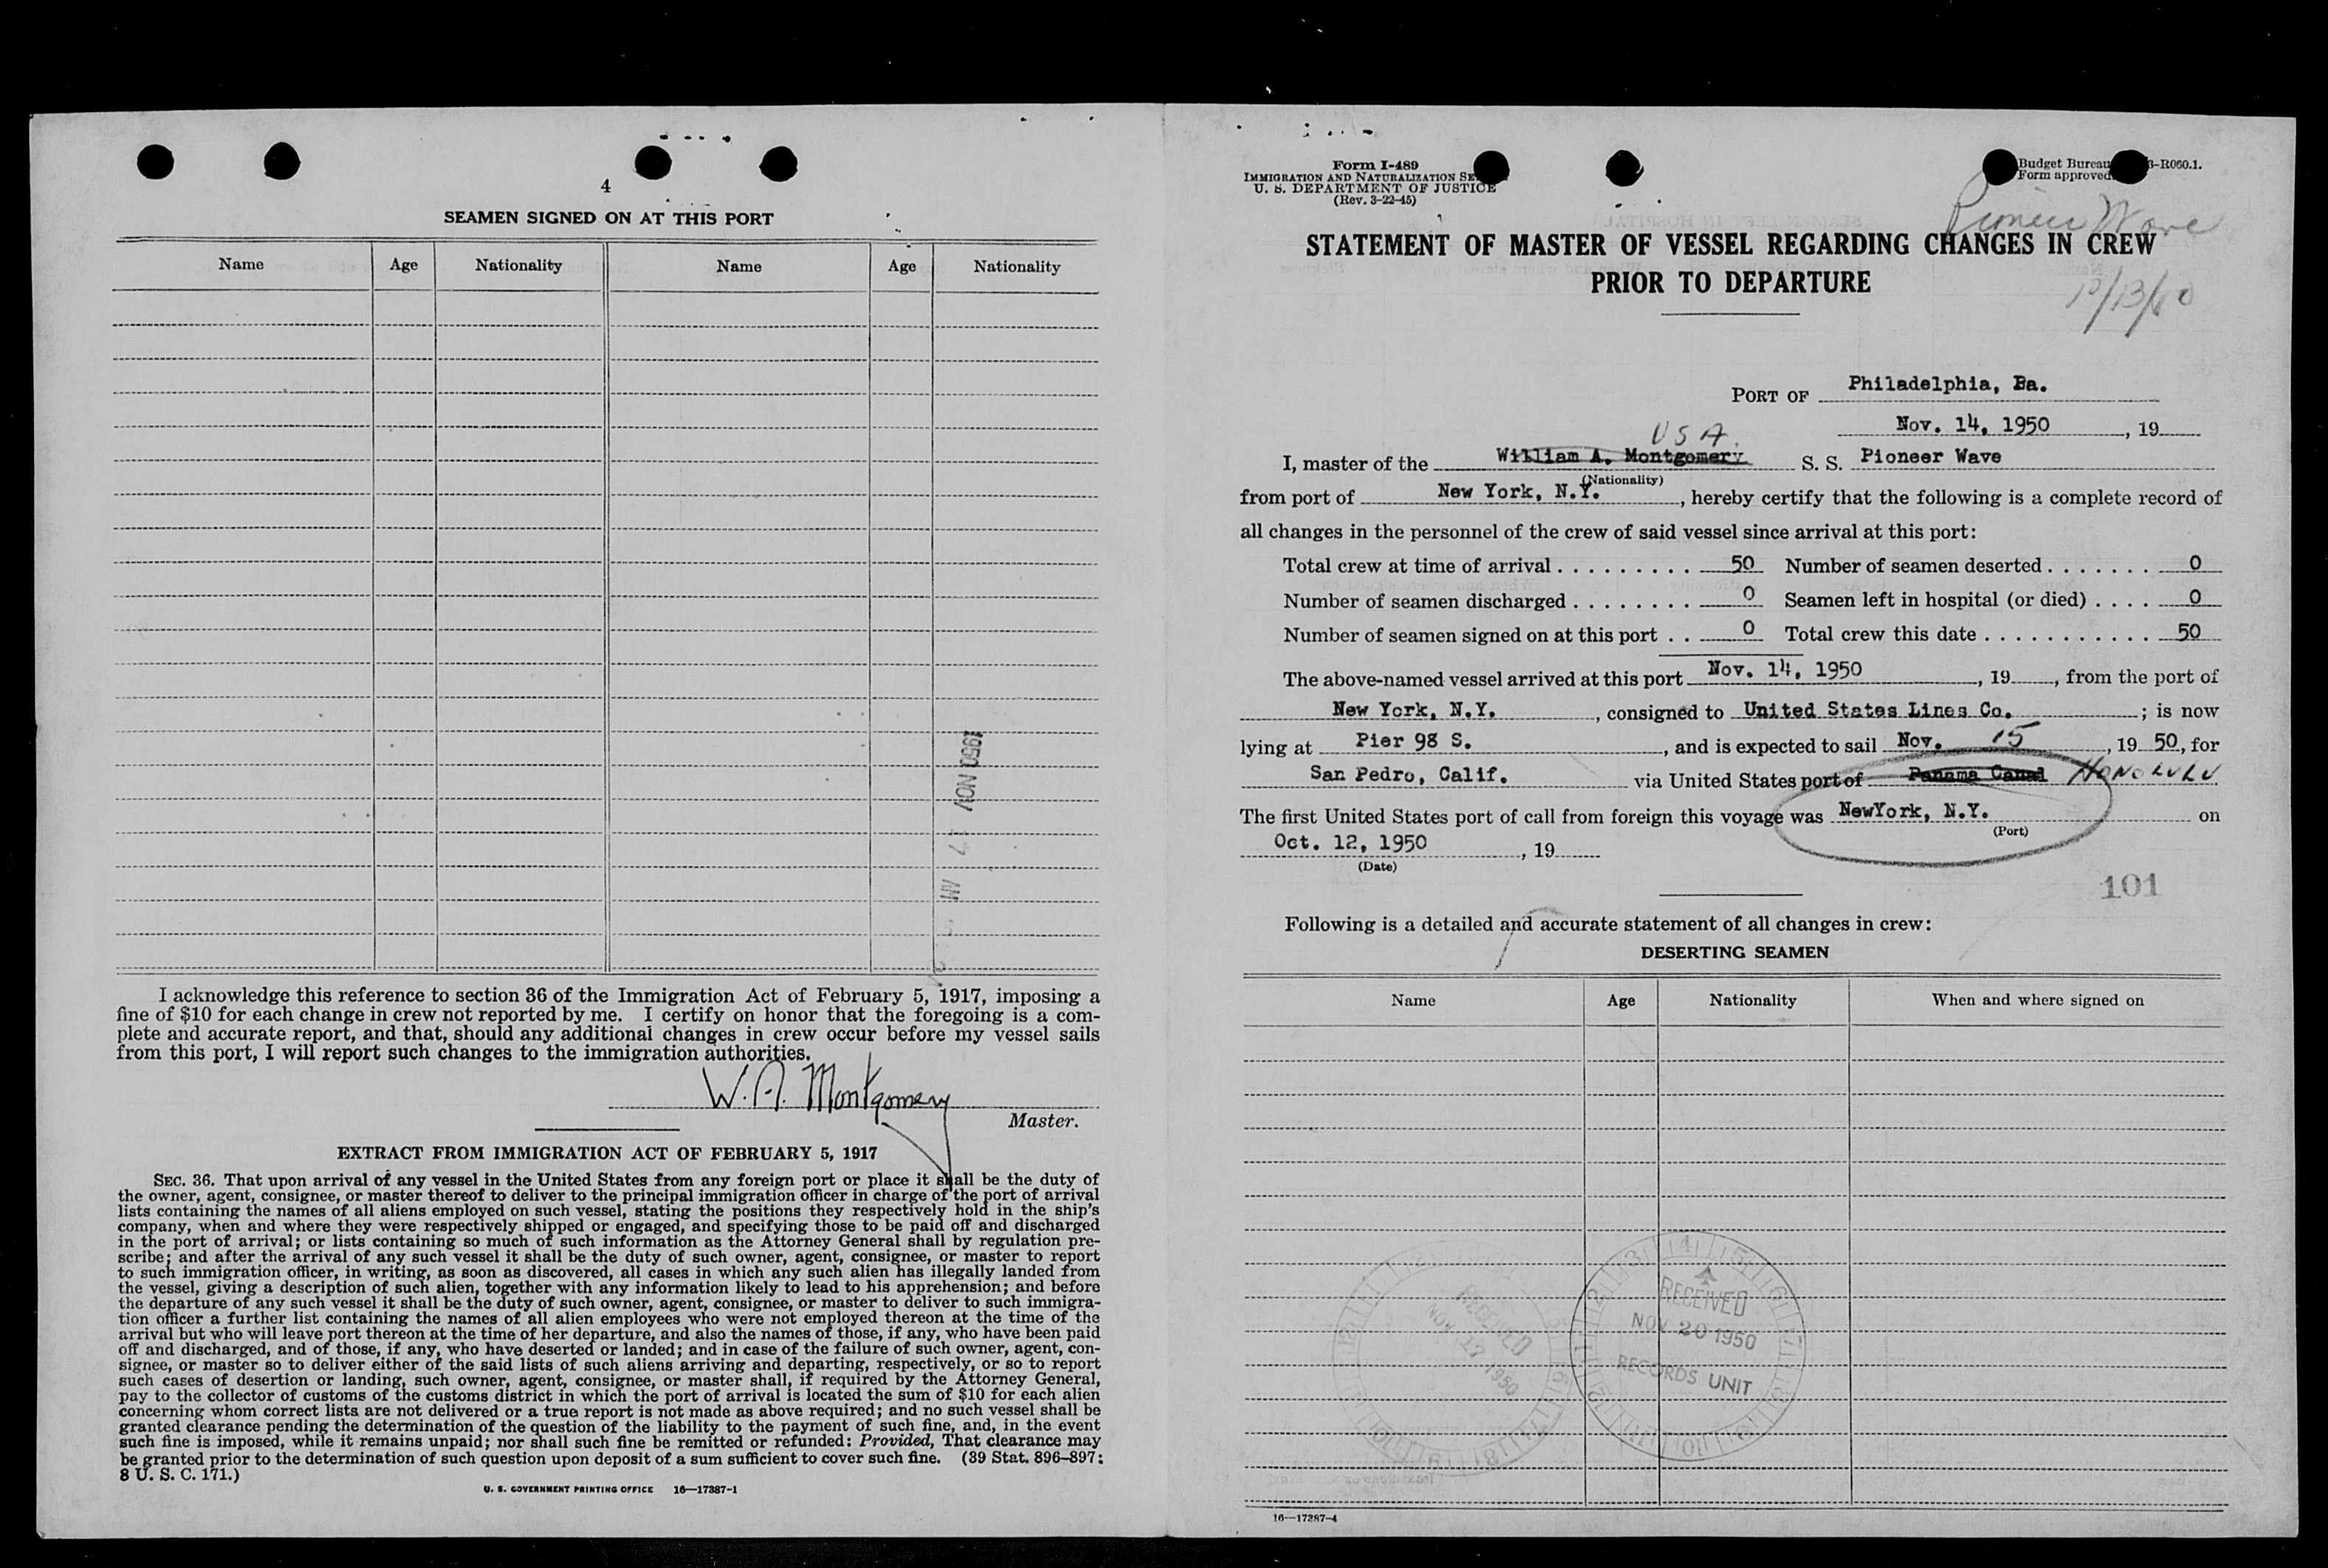 4
SEAMEN SIGNED ON AT THIS PORT
Name Age Nationality Name Age Nationality
1950 NOV 17 AM
I acknowledge this reference to section 36 of the Immigration Act of February 5, 1917, imposing a
fine of $10 for each change in crew not reported by me. I certify on honor that the foregoing is a com-
plete and accurate report, and that, should any additional changes in crew occur before my vessel sails
from this port, I will report such changes to the immigration authorities.
W. A. Montgomery
Master.
EXTRACT FROM IMMIGRATION ACT OF FEBRUARY 5, 1917
SEC. 36. That upon arrival of any vessel in the United States from any foreign port or place it shall be the duty of
the owner, agent, consignee, or master thereof to deliver to the principal immigration officer in charge of the port of arrival
lists containing the names of all aliens employed on such vessel, stating the positions they respectively hold in the ship's
company, when and where they were respectively shipped or engaged, and specifying those to be paid off and discharged
in the port of arrival; or lists containing so much of such information as the Attorney General shall by regulation pre-
scribe; and after the arrival of any such vessel it shall be the duty of such owner, agent, consignee, or master to report
to such immigration officer, in writing, as soon as discovered, all cases in which any such alien has illegally landed from
the vessel, giving a description of such alien, together with any information likely to lead to his apprehension; and before
the departure of any such vessel it shall be the duty of such owner, agent, consignee, or master to deliver to such immigra-
tion officer a further list containing the names of all alien employees who were not employed thereon at the time of the
arrival but who will leave port thereon at the time of her departure, and also the names of those, if any, who have been paid
off and discharged, and of those, if any, who have deserted or landed; and in case of the failure of such owner, agent, con-
signee, or master so to deliver either of the said lists of such aliens arriving and departing, respectively, or so to report
such cases of desertion or landing, such owner, agent, consignee, or master shall, if required by the Attorney General,
pay to the collector of customs of the customs district in which the port of arrival is located the sum of $10 for each alien
concerning whom correct lists are not delivered or a true report is not made as above required; and no such vessel shall be
granted clearance pending the determination of the question of the liability to the payment of such fine, and, in the event
such fine is imposed, while it remains unpaid; nor shall such fine be remitted or refunded: Provided, That clearance may
be granted prior to the determination of such question upon deposit of a sum sufficient to cover such fine. (39 Stat. 896-897;
8 U. S. C. 171.)
U. S. GOVERNMENT PRINTING OFFICE 16—17387-1
Form I-489
IMMIGRATION AND NATURALIZATION
U. S. DEPARTMENT OF JUSTICE
(Rev. 3-22-45)
Budget Bureau -R060.1.
Form approved
Pioneer Wave
STATEMENT OF MASTER OF VESSEL REGARDING CHANGES IN CREW
PRIOR TO DEPARTURE
PORT OF Philadelphia, Pa.
Nov. 14, 1950 , 19
USA.
I, master of the William A. Montgomery S. S. Pioneer Wave
(Nationality)
from port of New York, N.Y. , hereby certify that the following is a complete record of
all changes in the personnel of the crew of said vessel since arrival at this port:
Total crew at time of arrival . . . . . . . . . . 50 Number of seamen deserted . . . . . . . 0
Number of seamen discharged . . . . . . . . 0 Seamen left in hospital (or died) . . . . 0
Number of seamen signed on at this port . . 0 Total crew this date . . . . . . . . . . . 50
The above-named vessel arrived at this port Nov. 14, 1950 , 19 , from the port of
New York, N.Y. , consigned to United States Lines Co. ; is now
lying at Pier 98 S. , and is expected to sail Nov. 15 , 19 50, for
San Pedro, Calif. via United States port of Panama Canal HONOLULU
The first United States port of call from foreign this voyage was NewYork, N.Y. on
(Port)
Oct. 12, 1950 , 19
(Date)
101
Following is a detailed and accurate statement of all changes in crew:
DESERTING SEAMEN
Name Age Nationality When and where signed on
RECEIVED
NOV 17 1950
RECEIVED
NOV 20 1950
RECORDS UNIT
16—17387-4